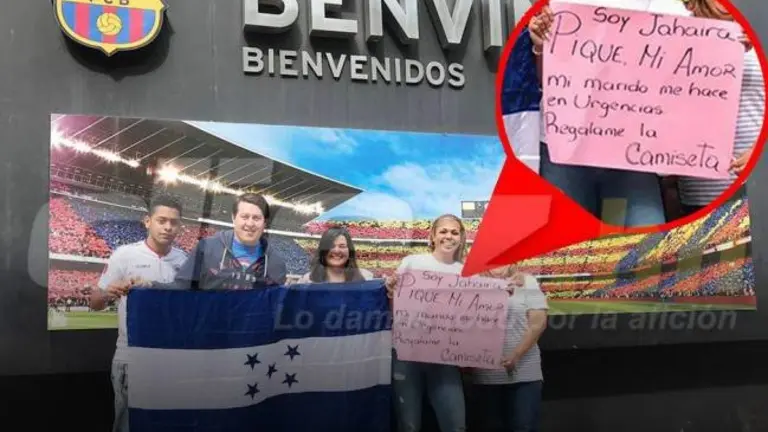 FCB
BIENVENIDOS
Soy Jahaira
PIQUE, Mi Amor
mi marido me hace
en Urgencias
Regalame la
Camiseta
Soy Jahaira
PIQUE, Mi Amor
mi marido me hace
en Urgencias
Regalame la
Camiseta
Lo damos todo por la afición